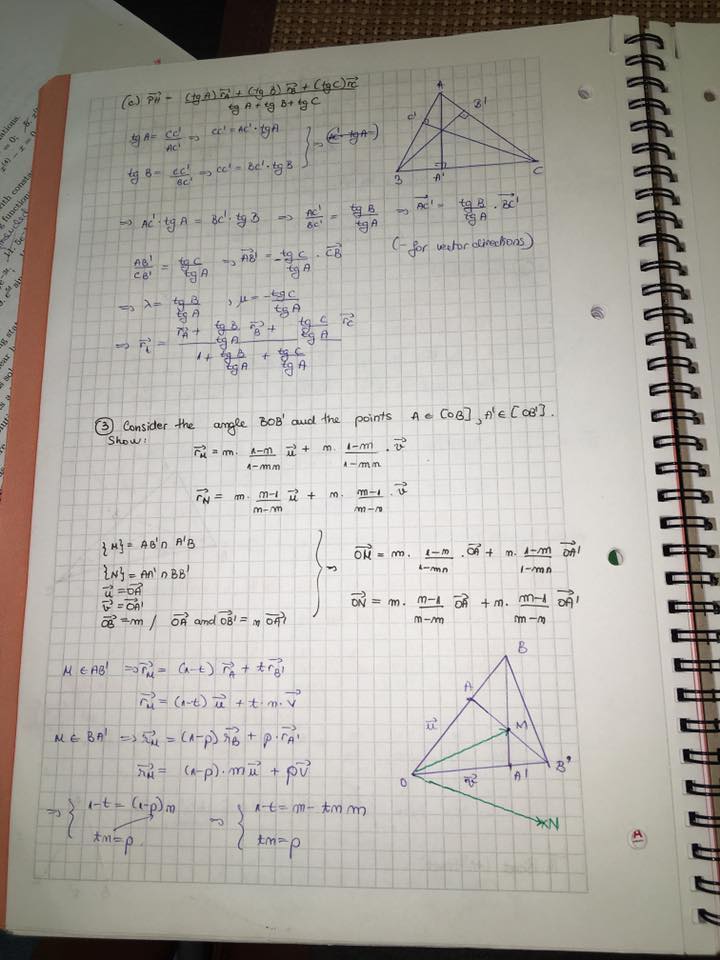 (c) PH⃗ = ((tg A) r_A⃗ + (tg B) r_B⃗ + (tg C) r_C⃗) / (tg A + tg B + tg C)
tg A = CC'/AC' ⇒ CC' = AC' · tg A
tg B = CC'/BC' ⇒ CC' = BC' · tg B
⇒ AC' · tg A = BC' · tg B ⇒ AC'/BC' = tg B/tg A ⇒ AC'⃗ = tg B/tg A · BC'⃗
AB'/CB' = tg C/tg A ⇒ AB'⃗ = - tg C/tg A · CB⃗ (- for vector directions)
⇒ λ = tg B/tg A , μ = -tg C/tg A
⇒ r_i⃗ = (r_A⃗ + tg B/tg A r_B⃗ + tg C/tg A r_C⃗) / (1 + tg B/tg A + tg C/tg A)
A
B'
C'
B
A'
C
③ Consider the angle BOB' and the points A ∈ [OB], A' ∈ [OB'].
Show:
r_M⃗ = m · (1-n)/(1-mn) u⃗ + n · (1-m)/(1-mn) · v⃗
r_N⃗ = m · (n-1)/(n-m) u⃗ + n · (m-1)/(m-n) · v⃗
{M} = AB' ∩ A'B
{N} = AA' ∩ BB'
u⃗ = OA⃗
v⃗ = OA'⃗
OB⃗ = m / OA⃗ and OB'⃗ = n OA'⃗
⇒ OM⃗ = m · (1-n)/(1-mn) · OA⃗ + n · (1-m)/(1-mn) OA'⃗
ON⃗ = m · (n-1)/(n-m) OA⃗ + n · (m-1)/(m-n) OA'⃗
M ∈ AB' ⇒ r_M⃗ = (1-t) r_A⃗ + t r_B'⃗
r_M⃗ = (1-t) u⃗ + t · n · v⃗
M ∈ BA' ⇒ r_M⃗ = (1-p) r_B⃗ + p · r_A'⃗
r_M⃗ = (1-p) · m u⃗ + p v⃗
⇒ { 1-t = (1-p) m ⇒ { 1-t = m - tn m
tn = p tn = p
B
A
u⃗
M
O
v⃗
A'
B'
N